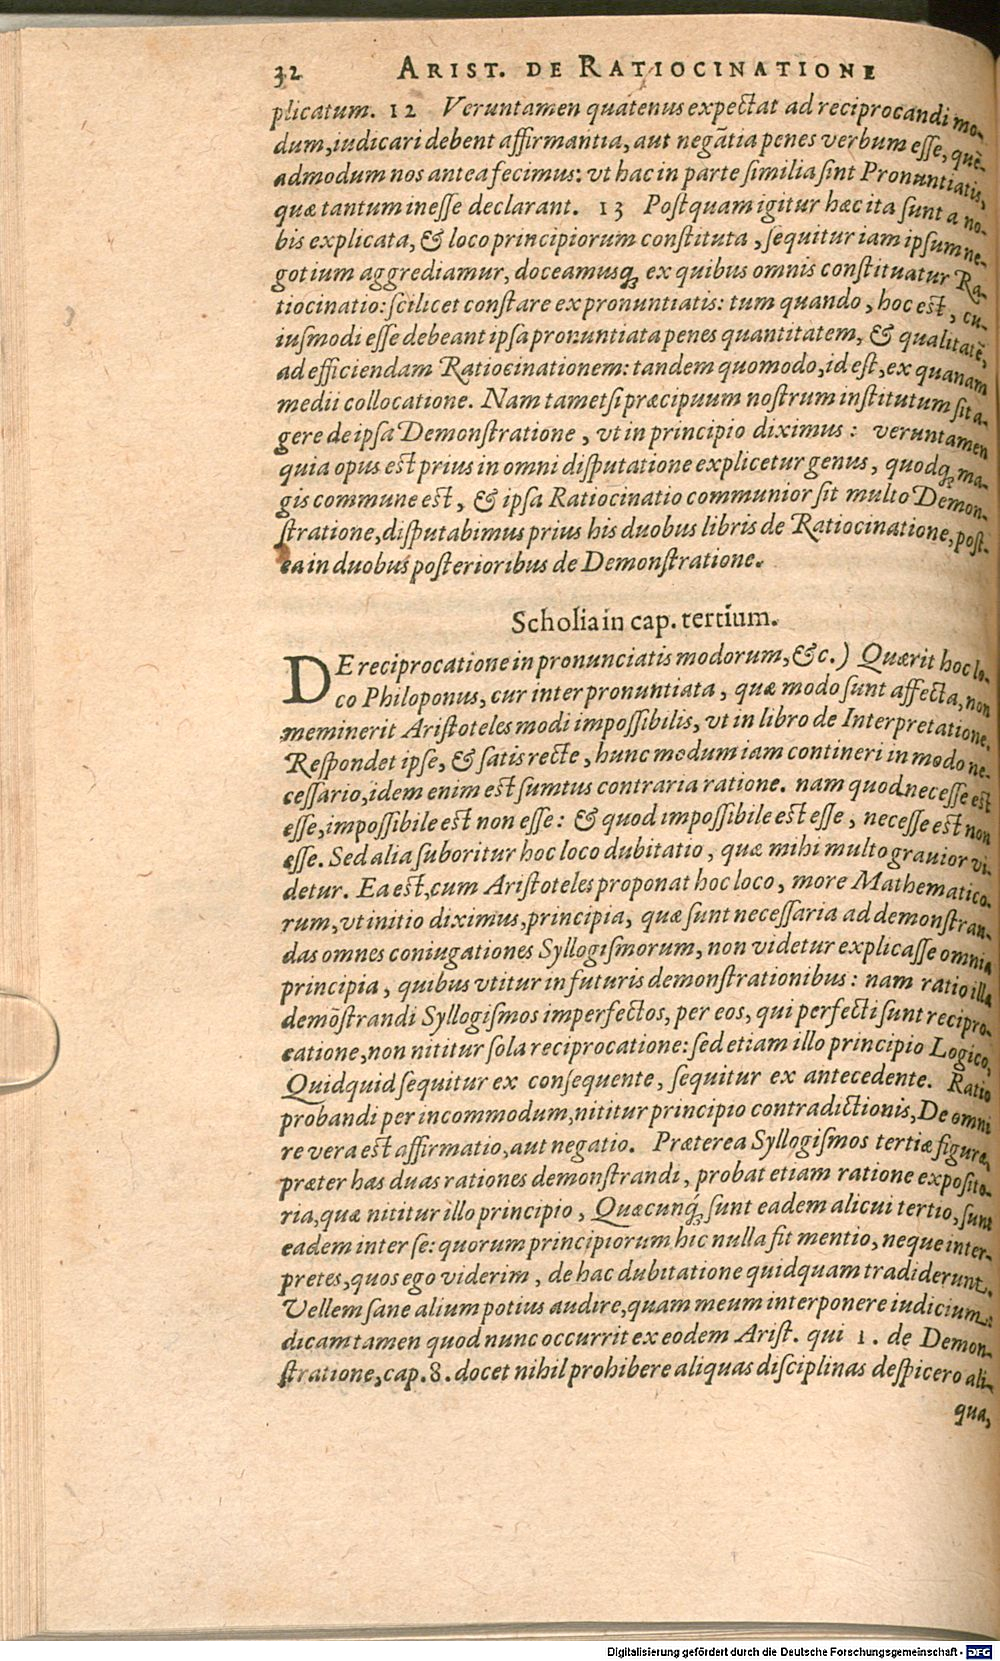 32 ARIST. DE RATIOCINATIONE
plicatum. 12 Veruntamen quatenus expectat ad reciprocandi mo-
dum, iudicari debent affirmantia, aut negãtia penes verbum esse, quẽ-
admodum nos antea fecimus: vt hac in parte similia sint Pronuntiatis,
quæ tantum inesse declarant. 13 Postquam igitur hæc ita sunt a no-
bis explicata, & loco principiorum constituta, sequitur iam ipsum ne-
gotium aggrediamur, doceamusq; ex quibus omnis constituatur Ra-
tiocinatio: scilicet constare ex pronuntiatis: tum quando, hoc est, cu-
iusmodi esse debeant ipsa pronuntiata penes quantitatem, & qualitatẽ,
ad efficiendam Ratiocinationem: tandem quomodo, id est, ex quanam
medii collocatione. Nam tametsi præcipuum nostrum institutum sit a-
gere de ipsa Demonstratione, vt in principio diximus: veruntamen
quia opus est prius in omni disputatione explicetur genus, quodq; ma-
gis commune est, & ipsa Ratiocinatio communior sit multo Demon-
stratione, disputabimus prius his duobus libris de Ratiocinatione, post-
ea in duobus posterioribus de Demonstratione.
Scholia in cap. tertium.
DE reciprocatione in pronunciatis modorum, &c.) Quærit hoc lo-
co Philoponus, cur inter pronuntiata, quæ modo sunt affecta, non
meminerit Aristoteles modi impossibilis, vt in libro de Interpretatione.
Respondet ipse, & satis recte, hunc modum iam contineri in modo ne-
cessario, idem enim est sumtus contraria ratione. nam quod necesse est
esse, impossibile est non esse: & quod impossibile est esse, necesse est non
esse. Sed alia suboritur hoc loco dubitatio, quæ mihi multo grauior vi-
detur. Ea est, cum Aristoteles proponat hoc loco, more Mathematico-
rum, vt initio diximus, principia, quæ sunt necessaria ad demonstran-
das omnes coniugationes Syllogismorum, non videtur explicasse omnia
principia, quibus vtitur in futuris demonstrationibus: nam ratio illa
demõstrandi Syllogismos imperfectos, per eos, qui perfecti sunt recipro-
catione, non nititur sola reciprocatione: sed etiam illo principio Logico,
Quidquid sequitur ex consequente, sequitur ex antecedente. Ratio
probandi per incommodum, nititur principio contradictionis, De omni
re vera est affirmatio, aut negatio. Præterea Syllogismos tertiæ figuræ,
præter has duas rationes demonstrandi, probat etiam ratione exposito-
ria, quæ nititur illo principio, Quæcunq; sunt eadem alicui tertio, sunt
eadem inter se: quorum principiorum hic nulla fit mentio, neque inter-
pretes, quos ego viderim, de hac dubitatione quidquam tradiderunt.
Vellem sane alium potius audire, quam meum interponere iudicium:
dicam tamen quod nunc occurrit ex eodem Arist. qui 1. de Demon-
stratione, cap. 8. docet nihil prohibere aliquas disciplinas despicero ali-
qua,
Digitalisierung gefördert durch die Deutsche Forschungsgemeinschaft - DFG